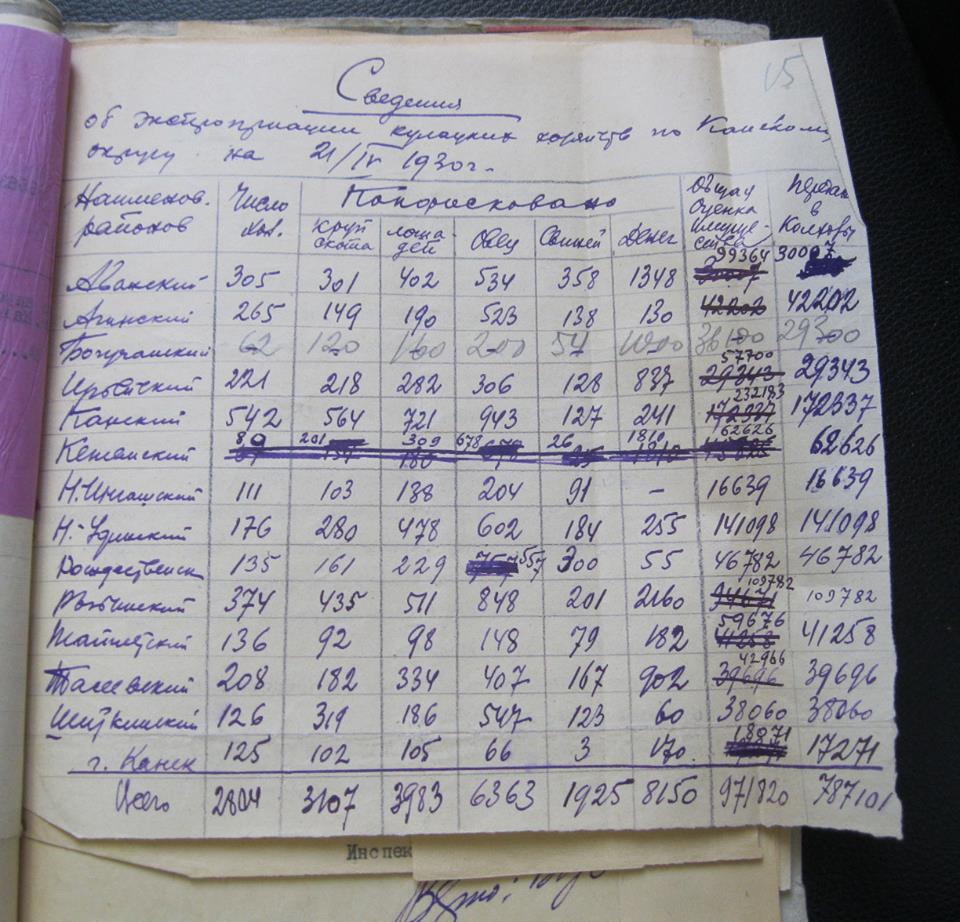 15
Сведения
об экспроприации кулацких хозяйств по Канскому
округу на 21/IV 1930г.
Наименов. районов Число хоз. Конфисковано Общая оценка имуще-ства Передан в Колхозы
круп скота лоша-дей Овец Свиней Денег
Абанский 305 301 402 534 358 1348 99364 30007
Агинский 265 149 190 523 138 130 42202 42202
Богучанский 62 120 160 200 54 1000 36100 29300
Ирбейский 221 218 282 306 128 887 57700 29343 29343
Канский 542 564 721 943 127 241 232183 172337 172337
Кежемский 89 201 309 678 26 1860 62626 62626
Н.Ингашский 111 103 188 204 91 — 16639 16639
Н-Удинский 176 280 478 602 184 255 141098 141098
Рождественск 135 161 229 757 557 300 55 46782 46782
Рыбинский 374 435 511 848 201 2160 109782 109782
Тайшетский 136 92 98 148 79 182 59676 41258 41258
Тасеевский 208 182 334 407 167 902 42966 39696 39696
Шиткинский 126 319 186 547 123 60 38060 38060
г. Канск 125 102 105 66 3 170. 18971 17271
Итого 2804 3107 3983 6363 1925 8150 971820 787101
Инспек